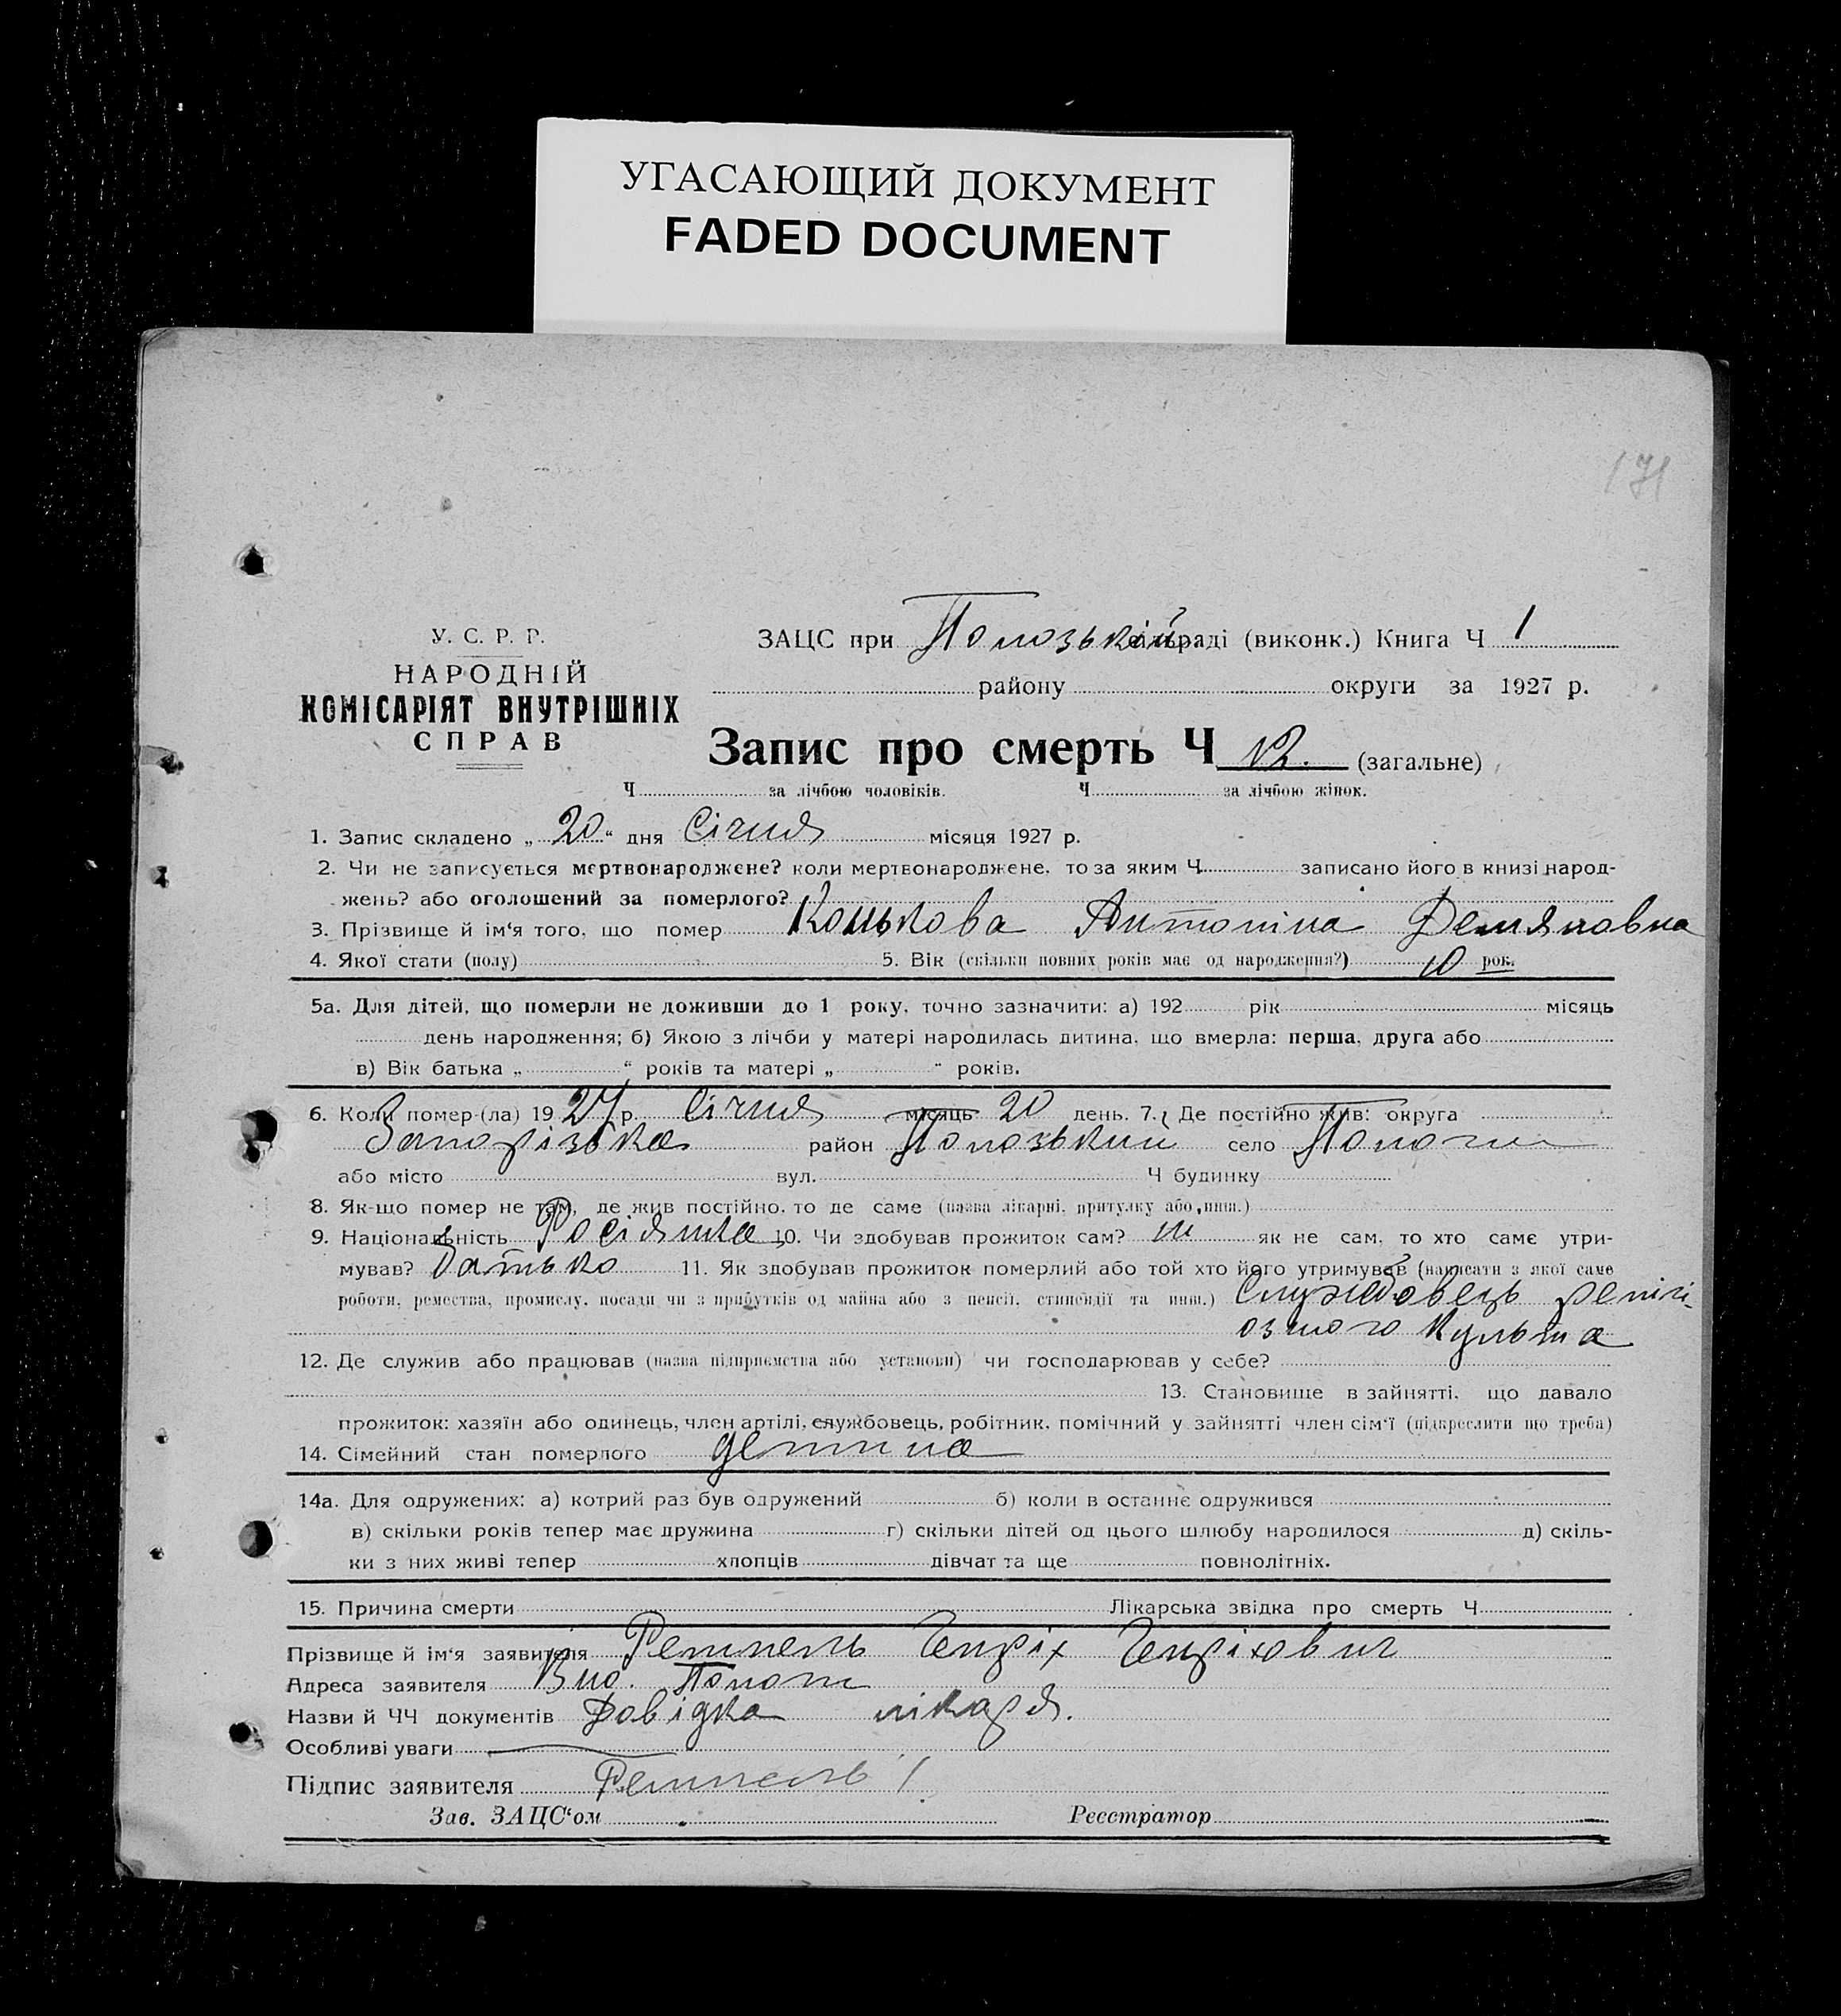 УГАСАЮЩИЙ ДОКУМЕНТ
FADED DOCUMENT
171
У. С. Р. Р.
НАРОДНІЙ
КОМІСАРІЯТ ВНУТРІШНІХ
СПРАВ
ЗАЦС при Пологській сільраді (виконк.) Книга Ч 1
району округи за 1927 р.
Запис про смерть Ч 12. (загальне)
Ч за лічбою чоловіків. Ч за лічбою жінок.
1. Запис складено „ 20 “ дня Січня місяця 1927 р.
2. Чи не записується мертвонароджене? коли мертвонароджене, то за яким Ч записано його в книзі народ-
жень? або оголошений за померлого?
3. Прізвище й ім‘я того, що помер Конькова Антоніна Демяновна
4. Якої стати (полу) 5. Вік (скільки повних років має од народження?) 10 рок.
5а. Для дітей, що померли не доживши до 1 року, точно зазначити: а) 192 рік місяць
день народження; б) Якою з лічби у матері народилась дитина, що вмерла: перша, друга або
в) Вік батька „ “ років та матері „ “ років.
6. Коли помер-(ла) 19 27 р. Січня місяць 20 день. 7. Де постійно жив: округа
Запорізька район Полозький село Пологи
або місто вул. Ч будинку
8. Як-що помер не там, де жив постійно, то де саме (назва лікарні, притулку або инш.)
9. Національність Росіянка 10. Чи здобував прожиток сам? ні як не сам, то хто саме утри-
мував? батько 11. Як здобував прожиток померлий або той хто його утримував (написати з якої саме
роботи, ремества, промислу, посади чи з прибутків од майна або з пенсії, стипендії та инш.) Служебовець релігі-
озного культа
12. Де служив або працював (назва підприємства або установи) чи господарював у себе?
13. Становище в зайнятті, що давало
прожиток: хазяїн або одинець, член артілі, службовець, робітник, помічний у зайнятті член сім‘ї (підкреслити що треба)
14. Сімейний стан померлого детина
14а. Для одружених: а) котрий раз був одружений б) коли в останнє одружився
в) скільки років тепер має дружина г) скільки дітей од цього шлюбу народилося д) скіль-
ки з них живі тепер хлопців дівчат та ще повнолітніх.
15. Причина смерти Лікарська звідка про смерть Ч
Прізвище й ім‘я заявителя Ремпель Генріх Генріхович
Адреса заявителя Пологи
Назви й ЧЧ документів Довідка лікаря.
Особливі уваги
Підпис заявителя Ремпель
Зав. ЗАЦС‘ом Реєстратор